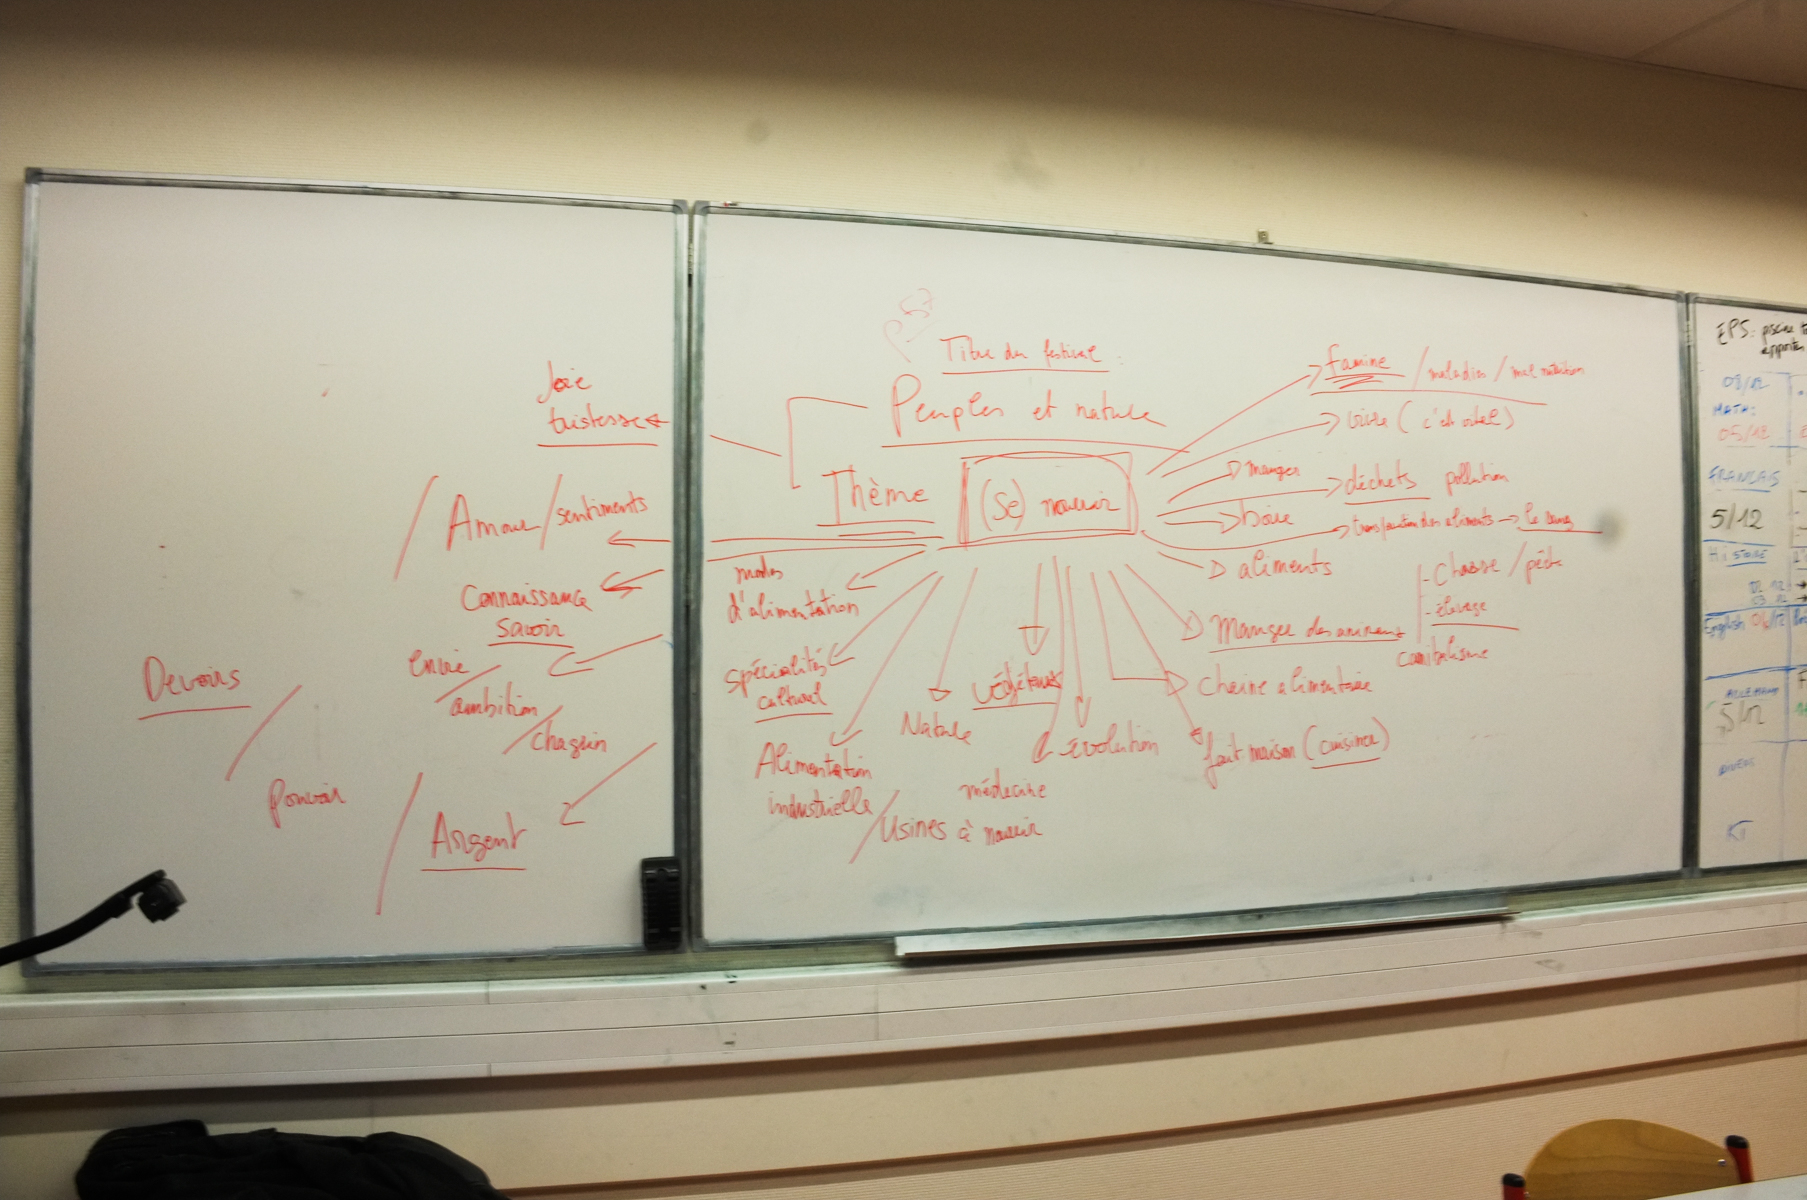 Joie
tristesse
Amour / sentiments
Connaissance
Savoir
envie
ambition
chagrin
Devoirs
pouvoir
Argent
Titre du festival :
Peuples et nature
Thème (Se) nourrir
modes
d'alimentation
spécialités
culturel
Alimentation
industrielle / Usines à nourrir
Nature
végétaux
évolution
médecine
famine / maladies / mal nutrition
vivre (c'est vital)
manger
déchets pollution
boire
aliments
Manger des animaux
- chasse / pêche
- élevage
chaine alimentaire
fait maison (cuisiner)
EPS: piscine
08/12
MATH:
05/12
FRANCAIS
5/12
HISTOIRE
02.12
03.12
English 06/12
ALLEMAND
5/12
DIVERS